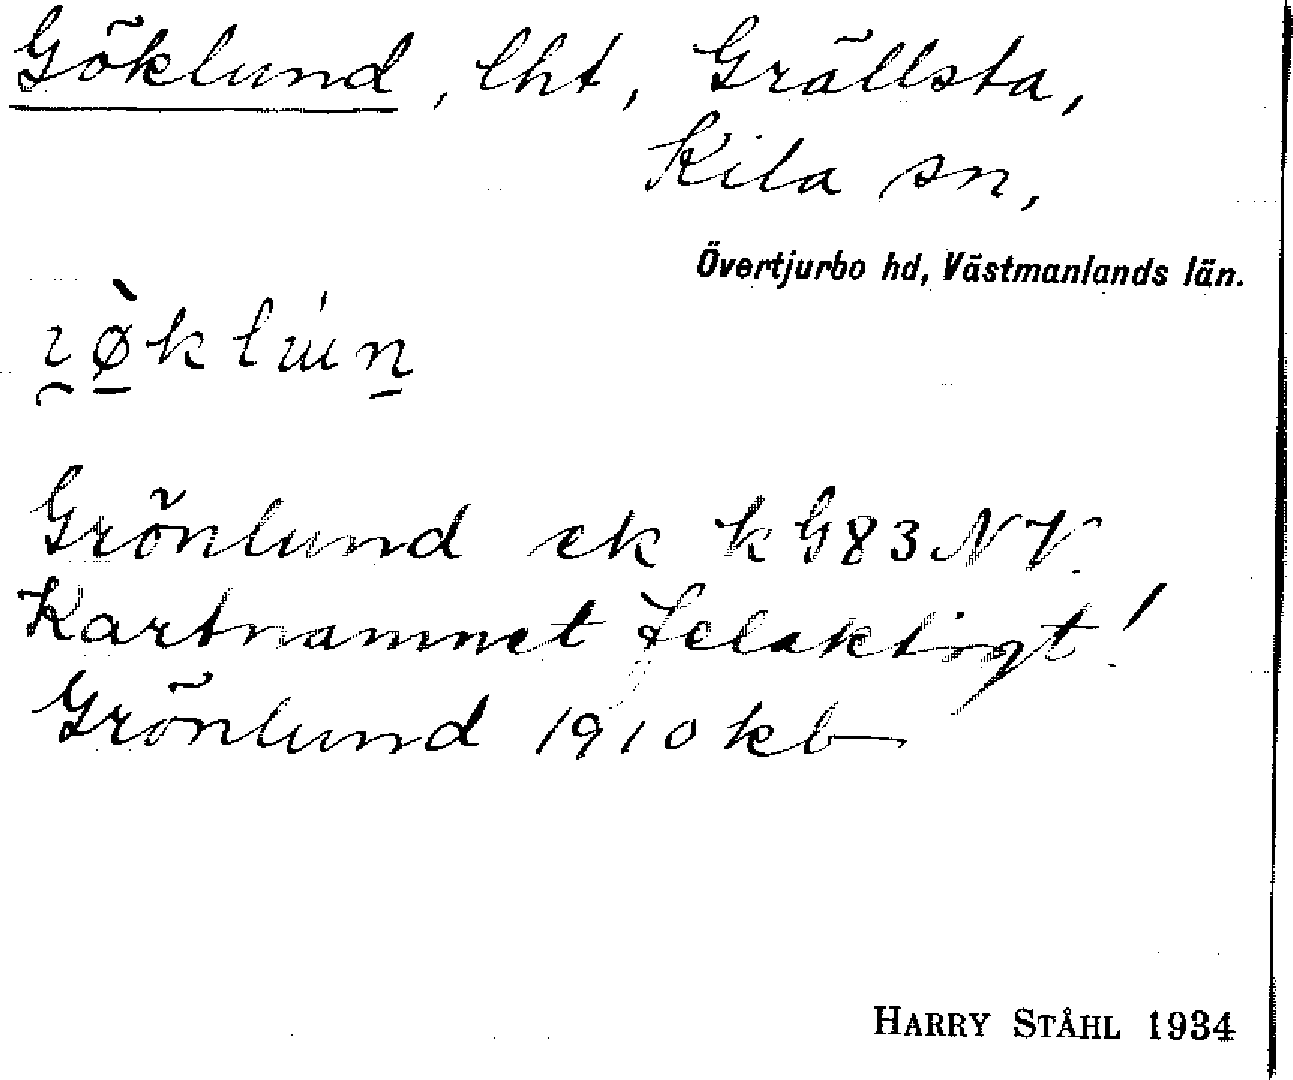 Göklund, lht, Grällsta,
Kila sn,
Övertjurbo hd, Västmanlands län.
Grönlund ek k G83 NV.
Kartnamnet felaktigt!
Grönlund 1910 kb
HARRY STÅHL 1934